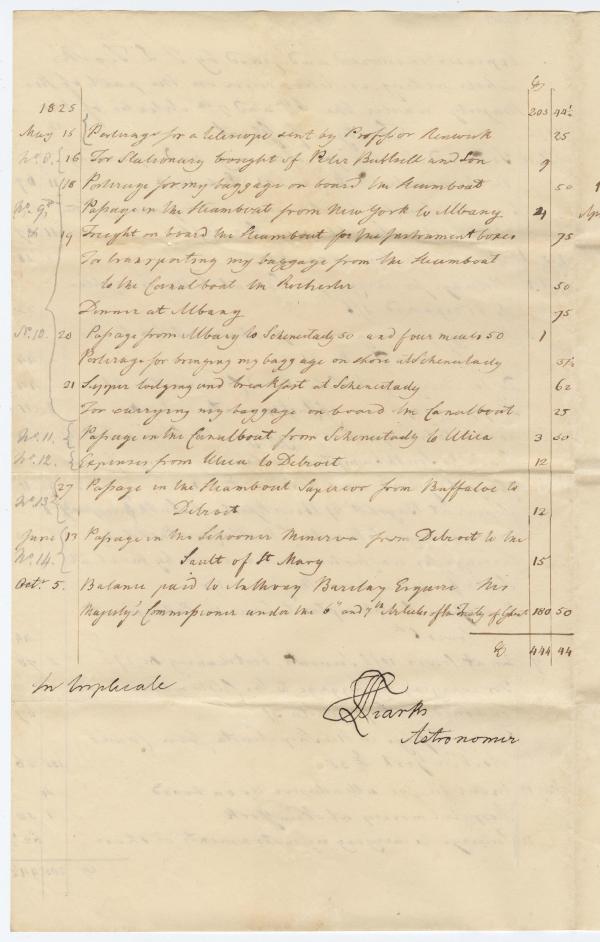 $
1825 203 94½
May 15 Porterage for a telescope sent by Professor Renwick 25
No. 8. 16 For Stationary bought of Peter Burtsell and Son 9
18 Porterage for my baggage on board the Steamboat 50
No. 9. Passage in the Steamboat from New York to Albany 4
19 Freight on board the Steamboat for the Instrument boxes 75
For transporting my baggage from the Steamboat
to the Canal boat the Rochester 50
Dinner at Albany 75
No. 10. 20 Passage from Albany to Schenectady 50 and four meals 50 1
Porterage for bringing my baggage on shore at Schenectady 37½
21 Supper lodging and breakfast at Schenectady 62
For carrying my baggage on board the Canal boat 25
No. 11. Passage in the Canalboat from Schenectady to Utica 3 50
No. 12. Expenses from Utica to Detroit 12
27 Passage in the Steamboat Superior from Buffaloe to
No. 13 Detroit 12
June 13 Passage in the Schooner Minerva from Detroit to the
No. 14. Sault of St Mary 15
Octr. 5. Balance paid to Anthony Barclay Esquire His
Majesty's Commissioner under the 6th and 7th Articles of the Treaty of Ghent 180 50
$ 444 94
In Triplicate
Tiarks
Astronomer